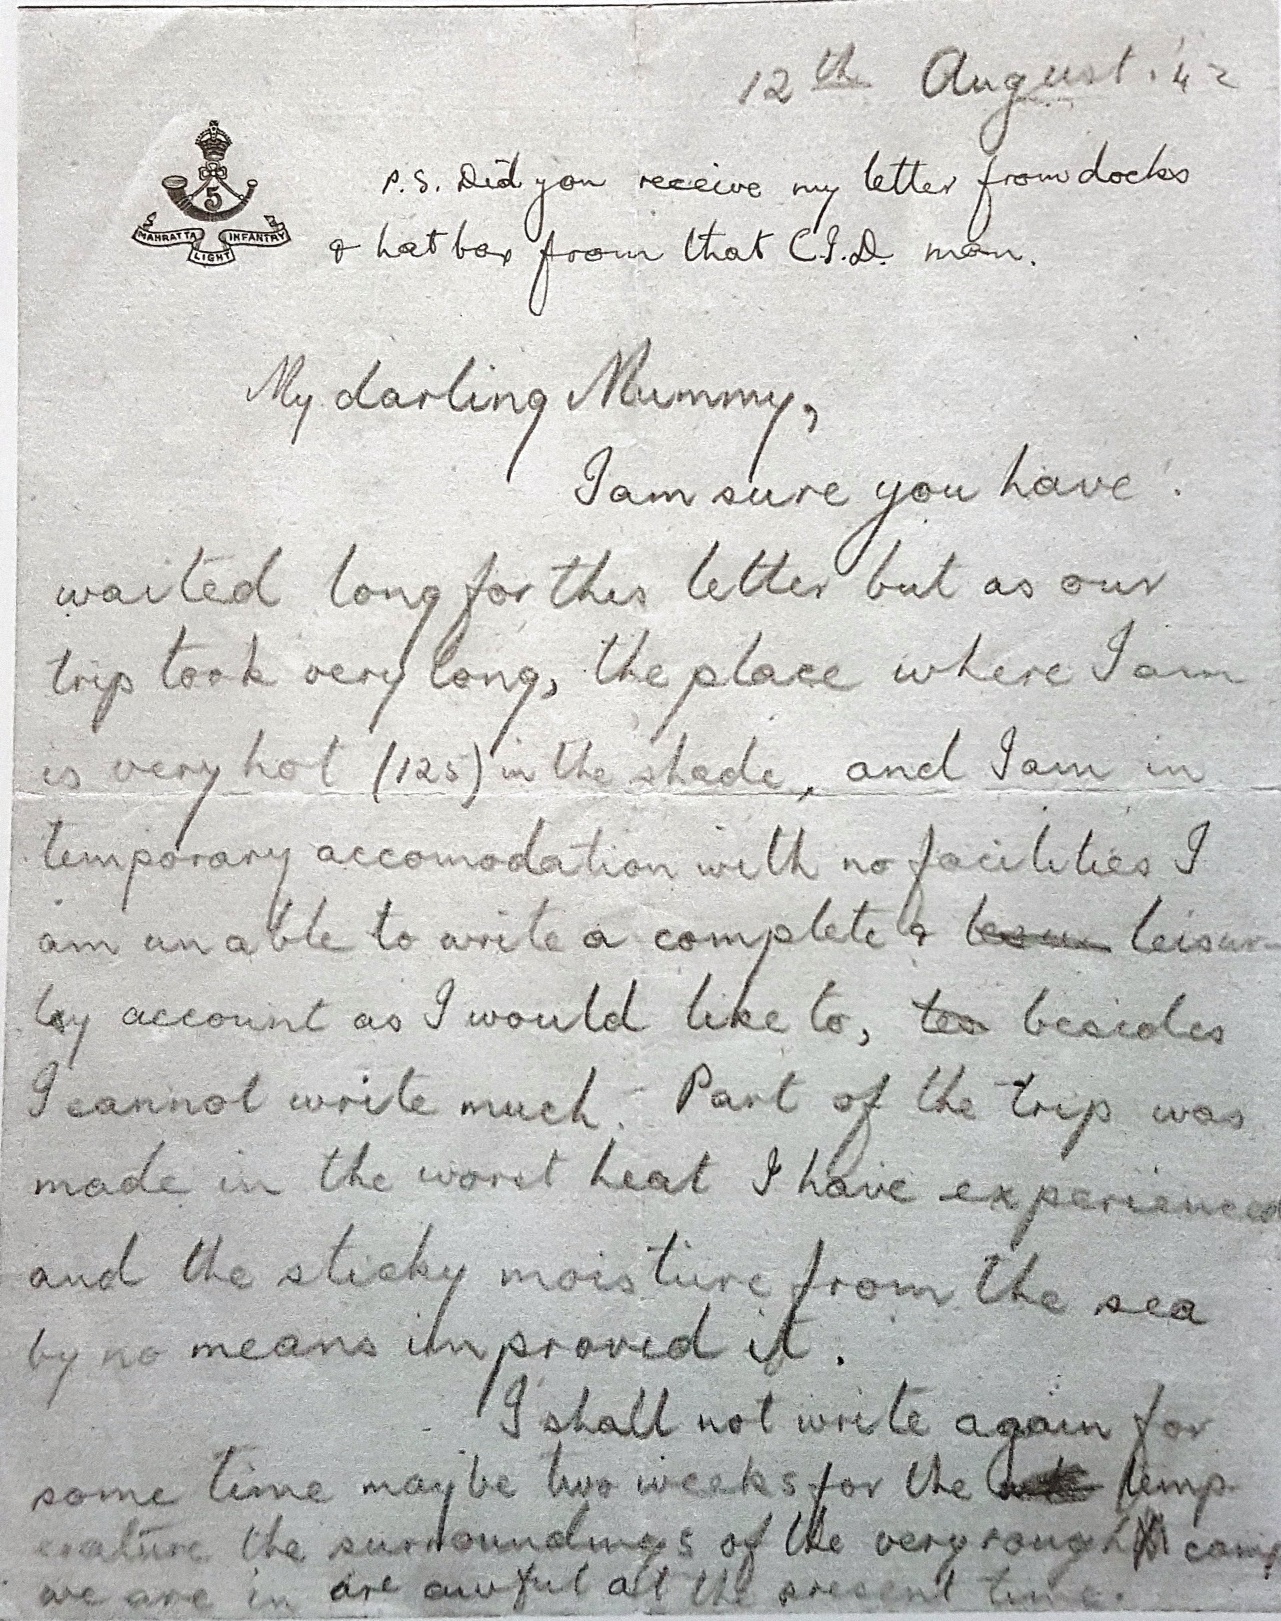 12th August '42
5
MAHRATTA LIGHT INFANTRY
P.S. Did you receive my letter from docks
& hat box from that C.I.D. man.
My darling Mummy,
I am sure you have
waited long for this letter but as our
trip took very long, the place where I am
is very hot (125) in the shade, and I am in
temporary accomodation with no facilities I
am unable to write a complete & leisur-
ly account as I would like to, besides
I cannot write much. Part of the trip was
made in the worst heat I have experienced
and the sticky moisture from the sea
by no means improved it.
I shall not write again for
some time maybe two weeks for the temp-
erature the surroundings of the very rough camp
we are in are awful at the present time.